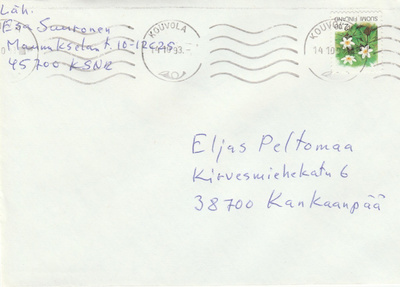 Läh.
Esa Suuronen
10-12C25
45700 KSNK
KOUVOLA
14.10.93.-
KOUVOLA
14.10
SUOMI
FINLAND
Eljas Peltomaa
Kirvesmiehekatu 6
38700 Kankaanpää